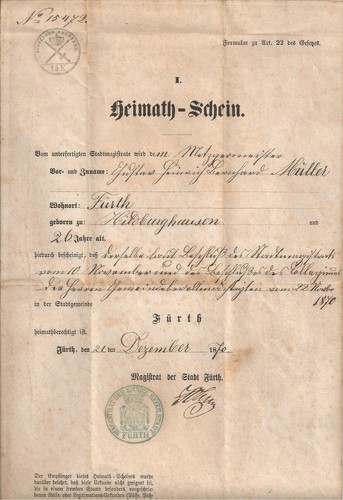 No 15472.
Formular zu Art. 22 des Gesetzes.
I.
Heimath-Schein.
Vom unterfertigten Stadtmagistrate wird dem Metzgermeister
Vor- und Zuname: Gustav Heinrich Bernhard Müller
Wohnort: Fürth
geboren zu: Hildburghausen und
26 Jahre alt,
hiedurch bescheinigt, daß derselbe laut Beschluß des Stadtmagistrats
vom 10 November und des Beschlußes des Collegiums
der Herren Gemeindebevollmächtigten vom 22 Novbr
1870
in der Stadtgemeinde
Fürth
heimathberechtigt ist.
Fürth, den 21ten Dezember 1870
Magistrat der Stadt Fürth.
FÜRTH
Der Empfänger dieses Heimath-Scheines wurde
darüber belehrt, daß diese Urkunde nicht geeignet ist,
die in einem fremden Staate besonders vorgeschrie-
benen Reise- oder Legitimations-Urkunden (Paß, Paß-